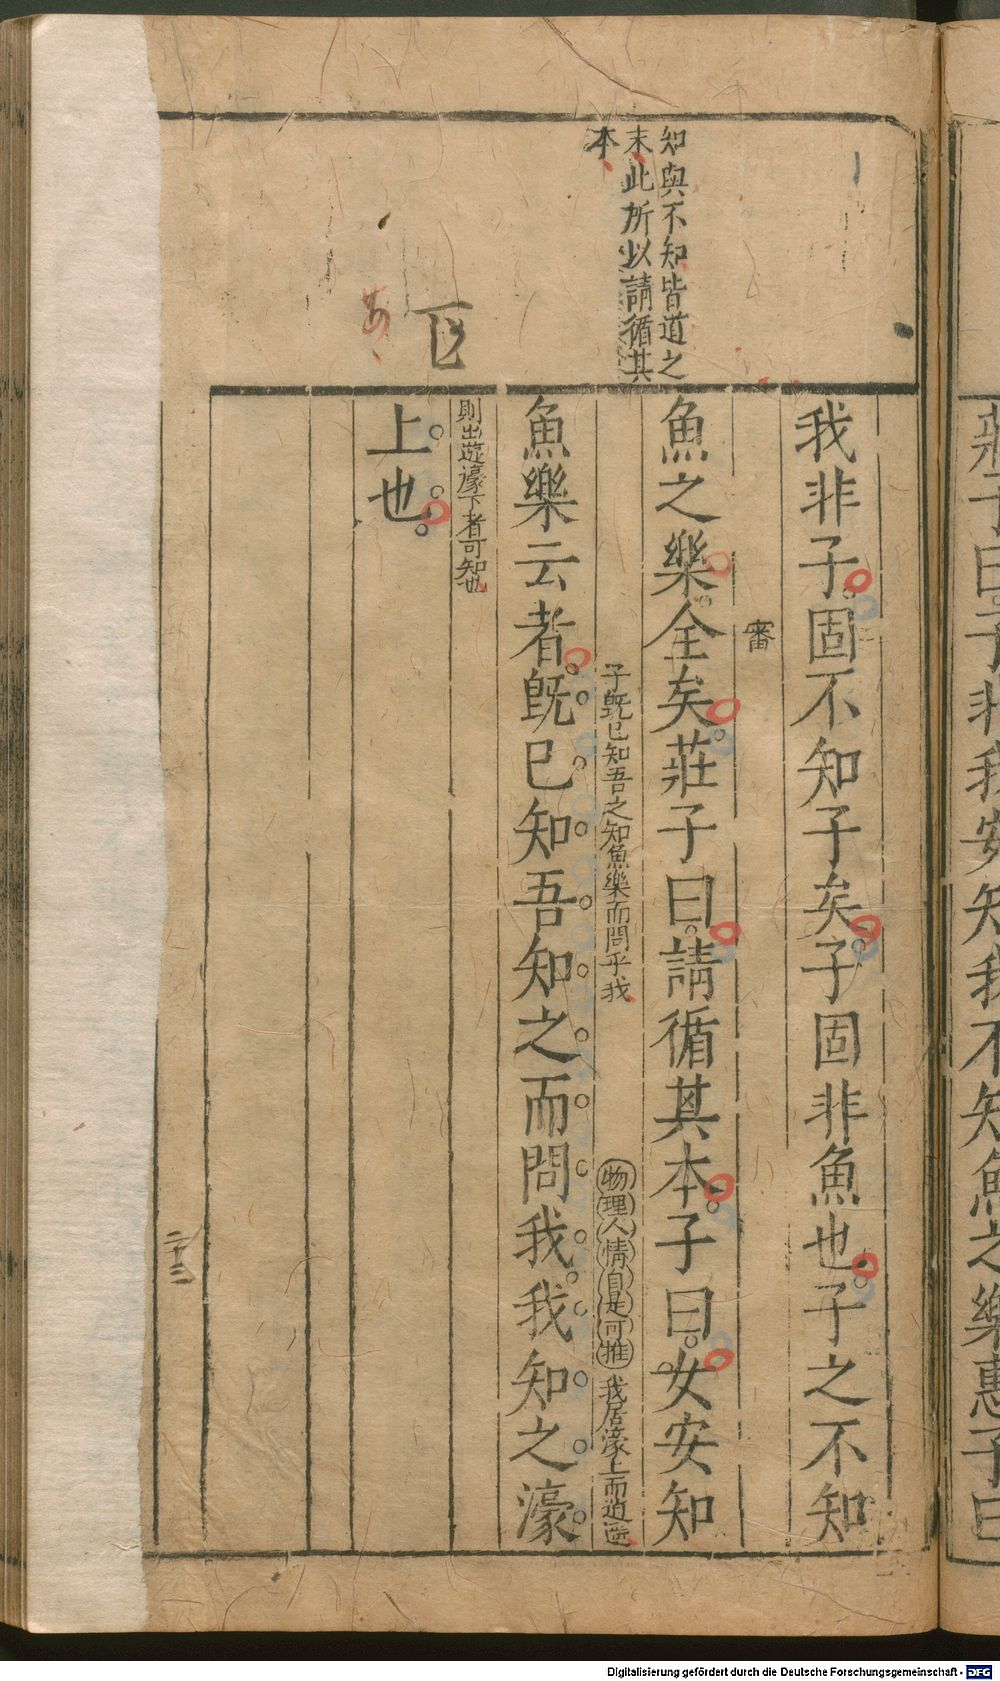 莊子曰子非我安知我不知魚之樂惠子曰
知與不知皆道之
末此所以請循其
本
我非子固不知子矣子固非魚也子之不知
審
魚之樂全矣莊子曰請循其本子曰女安知
子旣已知吾之知魚樂而問乎我
物理人情自是可推
我居濠上而逍遊
魚樂云者旣已知吾知之而問我我知之濠
則出遊濠下者可知也
上也
二十三
Digitalisierung gefördert durch die Deutsche Forschungsgemeinschaft - DFG